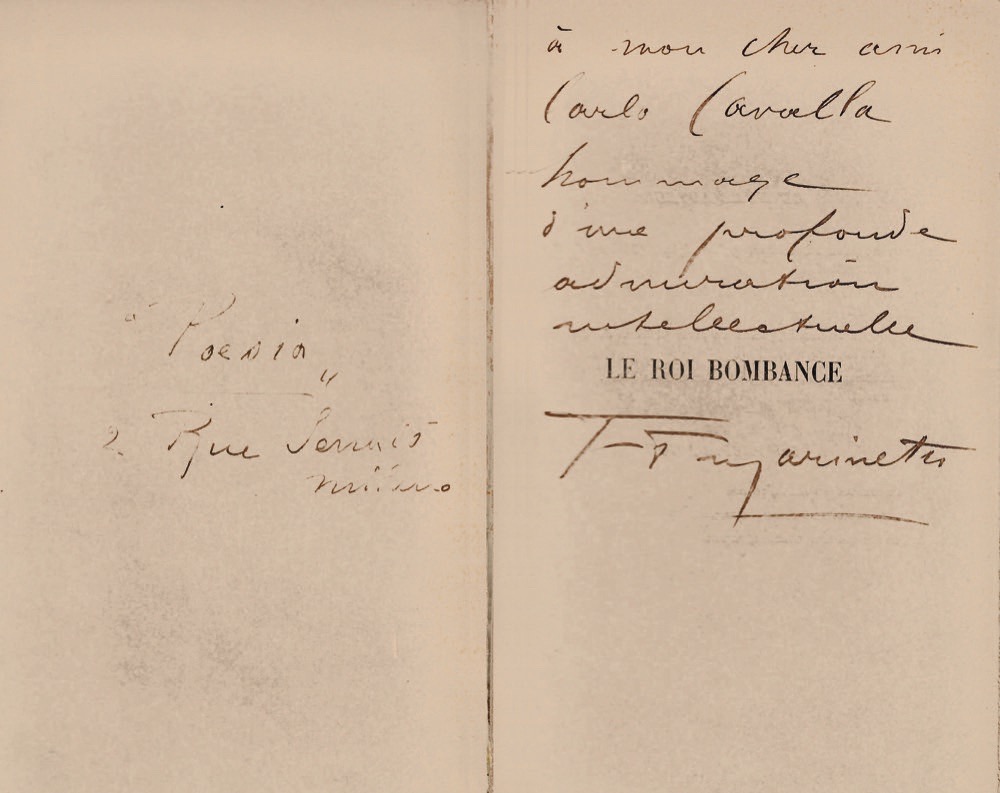 à Poesia „
2. Rue Senato
Milano
à mon cher ami
Carlo Cavalla
hommage
d'une profonde
admiration
intellectuelle
LE ROI BOMBANCE
F T Marinetti